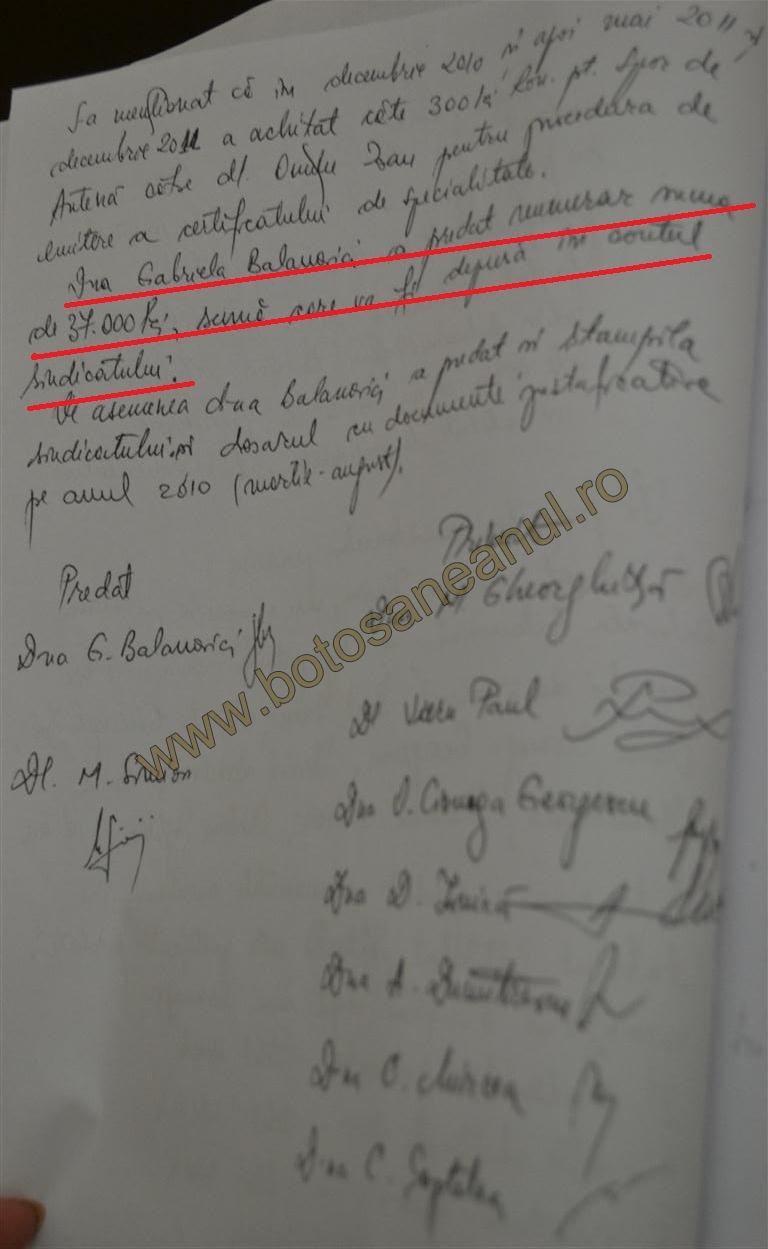 S-a menționat că în decembrie 2010 și apoi mai 2011 și
decembrie 2011 a achitat câte 300 lei pt. Spor de
Antenă către dl. pentru procedura de
emitere a certificatului de specialitate.
Dna Gabriela Balanovici a predat numerar suma
de 37.000 lei, sumă care va fi depusă în contul
sindicatului.
De asemenea d-na Balanovici a predat și stampila
sindicatului și dosarul cu documente justificative
pe anul 2010 (martie-august).
Predat
Dna G. Balanovici
Dl. M.
M. Gheorghiță
Dl Paul
Dna Georgescu
Dna D.
Dna A.
Dna C. Mircea
Dna C.
www.botosaneanul.ro